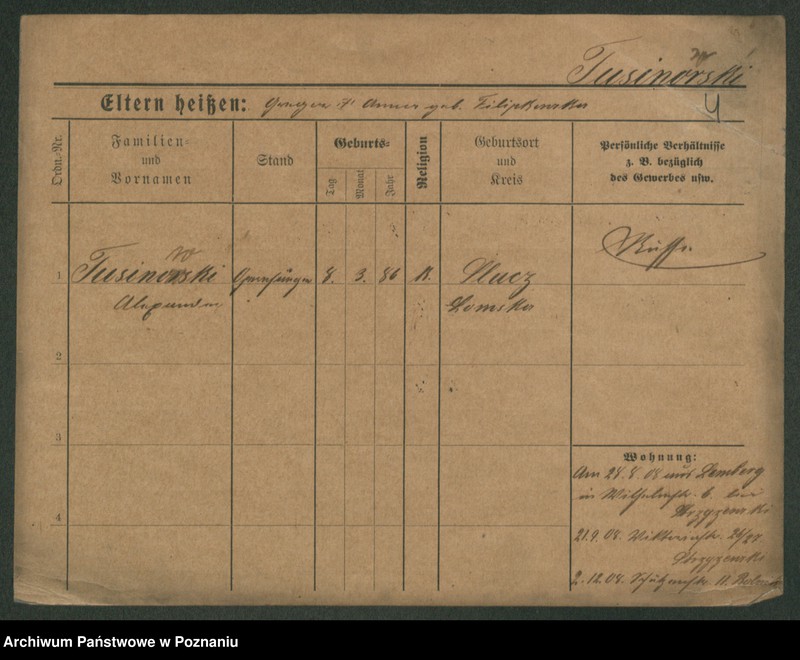 Tusinowski
4
Eltern heißen: Gregor u Anna geb. Filipkowska
Ordn.-Nr.
Familien-
und
Vornamen
Stand
Geburts-
Tag
Monat
Jahr
Religion
Geburtsort
und
Kreis
Persönliche Verhältnisse
z. B. bezüglich
des Gewerbes usw.
Russe
1 Tusinowski Opernsänger 8. 3. 86 K.
Alexander Lomska
2
3
4
Wohnung:
Am 28.8.08 aus Lemberg
in Wilhelmstr. 6. bei
21.9.08. Viktoriastr. 26/27
2.12.08. Schützenstr. 11.
Archiwum Państwowe w Poznaniu